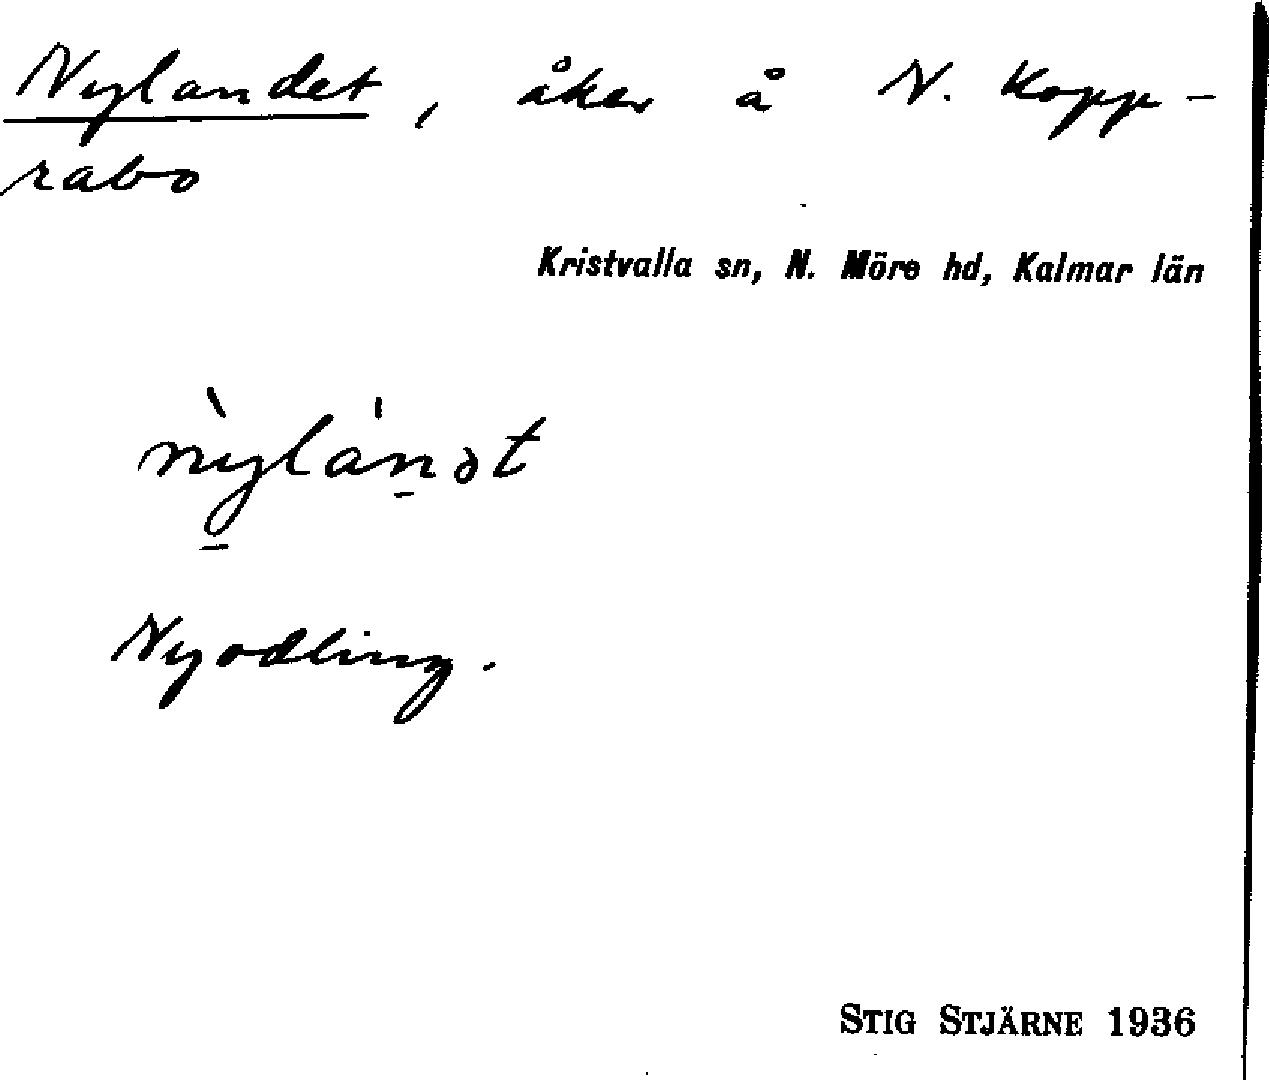 Nylandet, åker å N. Kopp-
rabo
Kristvalla sn, N. Möre hd, Kalmar län
nỳla̍n̠ət
Nyodling.
STIG STJÄRNE 1936